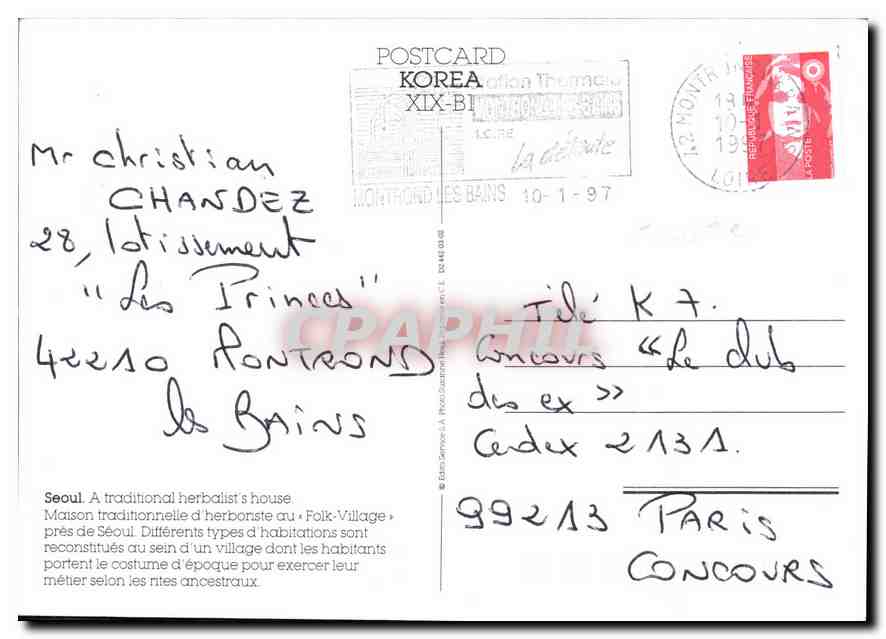 POSTCARD
KOREA
XIX-B1
Station Thermale
LOIRE
La détente
MONTROND LES BAINS 10-1-97
42 MONTR
10-
LOIRE
RÉPUBLIQUE FRANÇAISE
LA POSTE
Mr Christian
CHANDEZ
28, lotissement
"Les Princes"
42210 MONTROND
les BAINS
Seoul. A traditional herbalist's house.
Maison traditionnelle d'herboriste au « Folk-Village »
près de Séoul. Différents types d'habitations sont
reconstitués au sein d'un village dont les habitants
portent le costume d'époque pour exercer leur
métier selon les rites ancestraux.
© Edito Service S.A. Photo Suzanne Held D2 442 03-02
CPAPHIL
Télé K 7.
Concours "Le club
des ex »
Cedex 2131.
99213 PARIS
CONCOURS